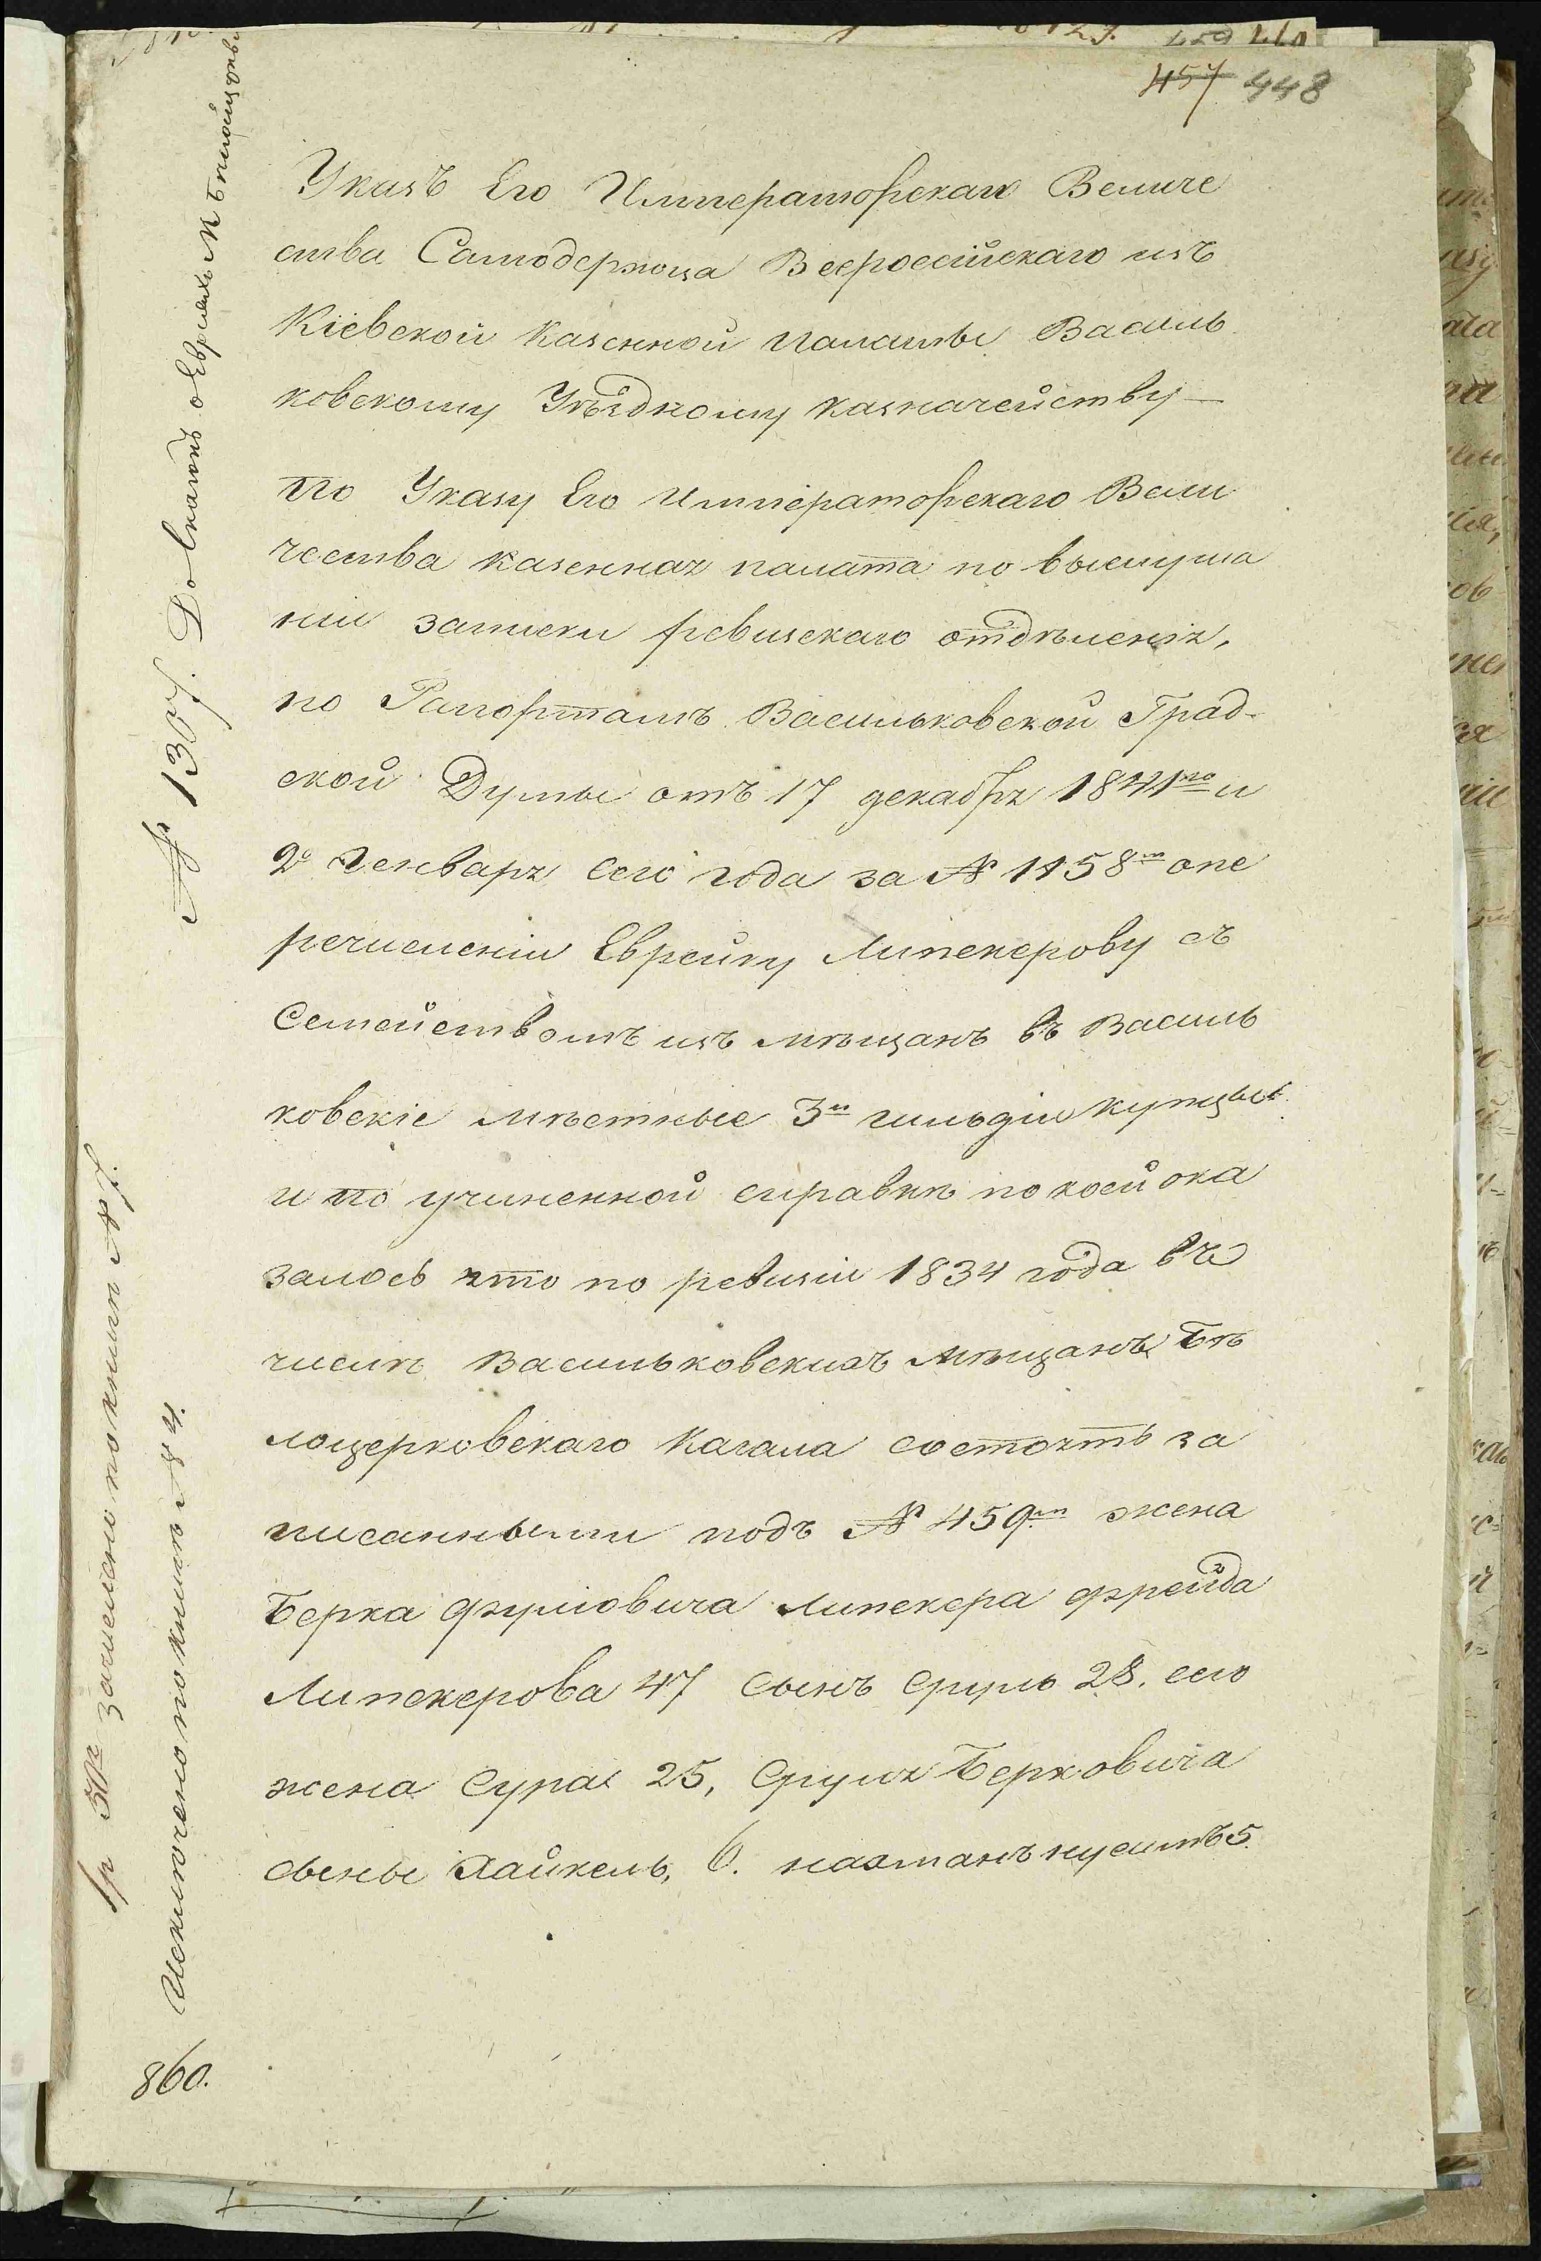 457 448
Указъ Его Императорскаго Величе
ства Самодержца Всероссійскаго изъ
Кіевской Казенной Палаты Василь
ковскому Уѣздному казначейству —
По Указу Его Императорскаго Вели
чества казенная палата по выслуша
ніи записки ревизскаго отдѣленія,
по Рапортамъ Васильковской Град-
ской Думы отъ 17 декабря 1841го и
2о Генваря сего года за № 1158м опе
речисленіи Еврейку Липскерову съ
Семействомъ изъ мѣщанъ въ Василь
ковскіе мѣстные 3й гильдіи купцы
и по учиненной справкѣ по коей ока
залось что по ревизіи 1834 года въ
числѣ Васильковскихъ мѣщанъ Бѣ
лоцерковскаго Кагала состоятъ за
писанными подъ № 459м жена
Берка Сруловича Липскера Фрейда
Липскерова 47 Сынъ Сруль 28. его
жена Сура 25, Сруля Берковича
сыны Хайкель, 6. нахманъ нусимъ 5.
№ 1307. о Евреяхъ
зачислено по книгѣ №
Исключено по книгѣ № 4.
860.